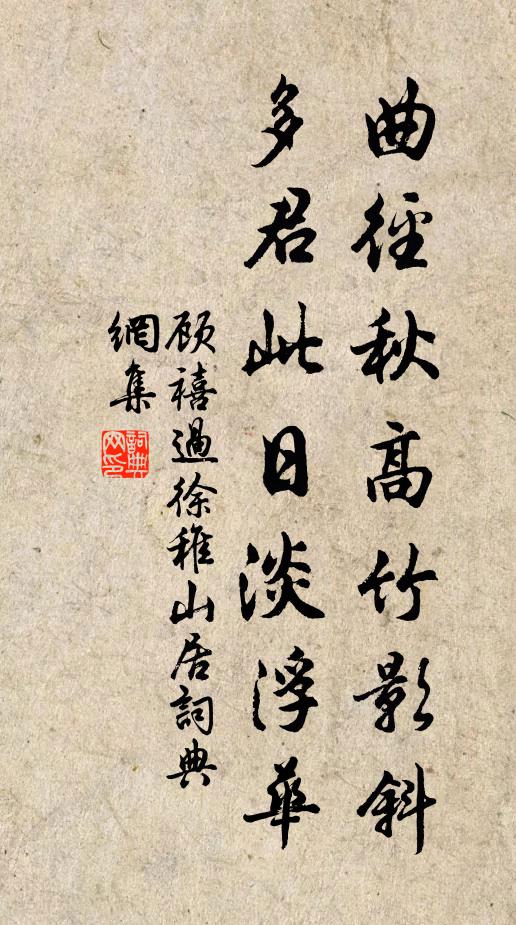 曲徑秋高竹影斜
多君此日淡浮華
顾禧過徐稚山居詞典
網集
詞典网印